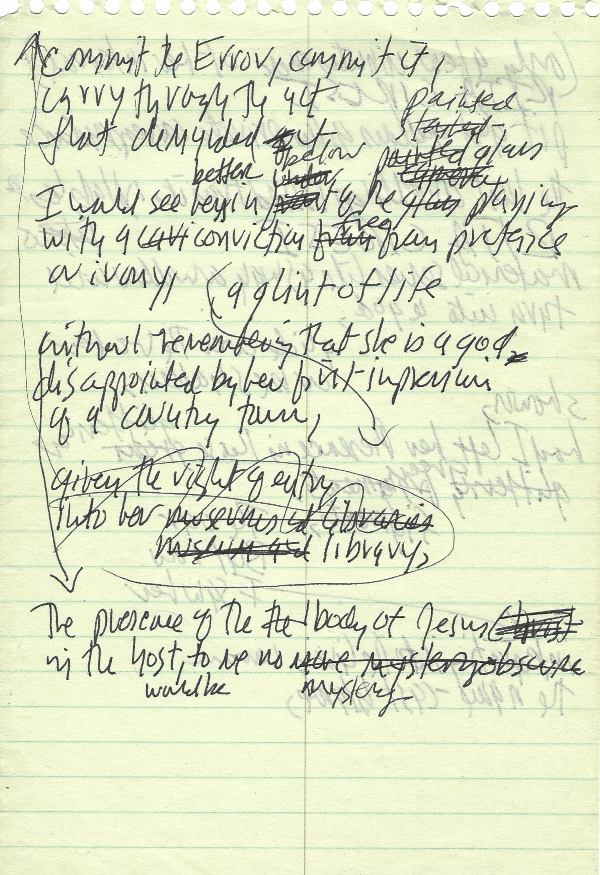 Commit the Error, commit it,
carry through the act
painted
that demanded
stained
below painted glass
better under
I would see begin in of the glass playing
with a conviction free from pretence
or ivory,
a glint of life
without remembering that she is a god
disappointed by her first impression
of a country town,
given the right of entry
into her museums and libraries
museum and library,
The presence of the body of Jesus Christ
in the host, to me no more mystery obscure
would be mystery